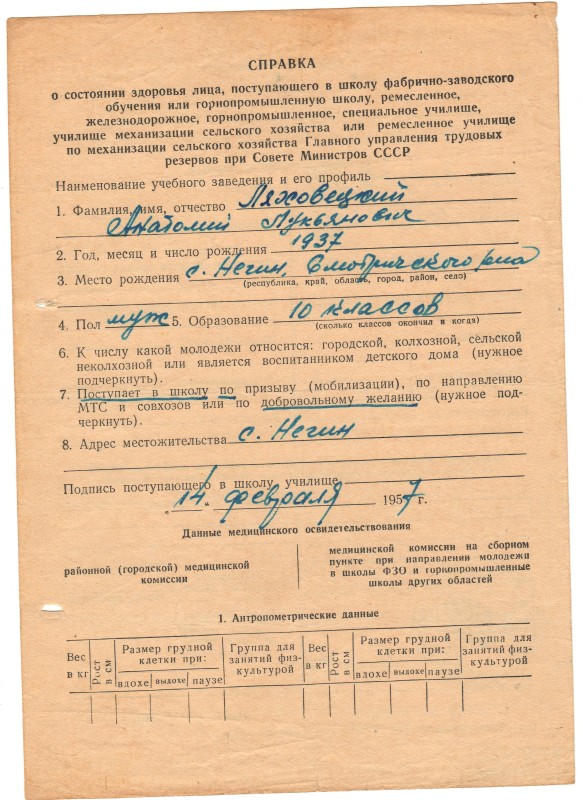 СПРАВКА
о состоянии здоровья лица, поступающего в школу фабрично-заводского
обучения или горнопромышленную школу, ремесленное,
железнодорожное, горнопромышленное, специальное училище,
училище механизации сельского хозяйства или ремесленное училище
по механизации сельского хозяйства Главного управления трудовых
резервов при Совете Министров СССР
Наименование учебного заведения и его профиль
1. Фамилия, имя, отчество Ляховецкий
Анатолий Лукьянович
2. Год, месяц и число рождения 1937
3. Место рождения с. Негин, Смотрического р-на
(республика, край, область, город, район, село)
4. Пол муж 5. Образование 10 классов
(сколько классов окончил и когда)
6. К числу какой молодежи относится: городской, колхозной, сельской
неколхозной или является воспитанником детского дома (нужное
подчеркнуть).
7. Поступает в школу по призыву (мобилизации), по направлению
МТС и совхозов или по добровольному желанию (нужное под-
черкнуть).
8. Адрес местожительства с. Негин
Подпись поступающего в школу училище
„14" февраля 1957 г.
Данные медицинского освидетельствования
районной (городской) медицинской
комиссии
медицинской комиссии на сборном
пункте при направлении молодежи
в школы ФЗО и горнопромышленные
школы других областей
1. Антропометрические данные
Вес в кг Рост в см Размер грудной клетки при: вдохе выдохе паузе Группа для занятий физ-культурой Вес в кг Рост в см Размер грудной клетки при: вдохе выдохе паузе Группа для занятий физ-культурой